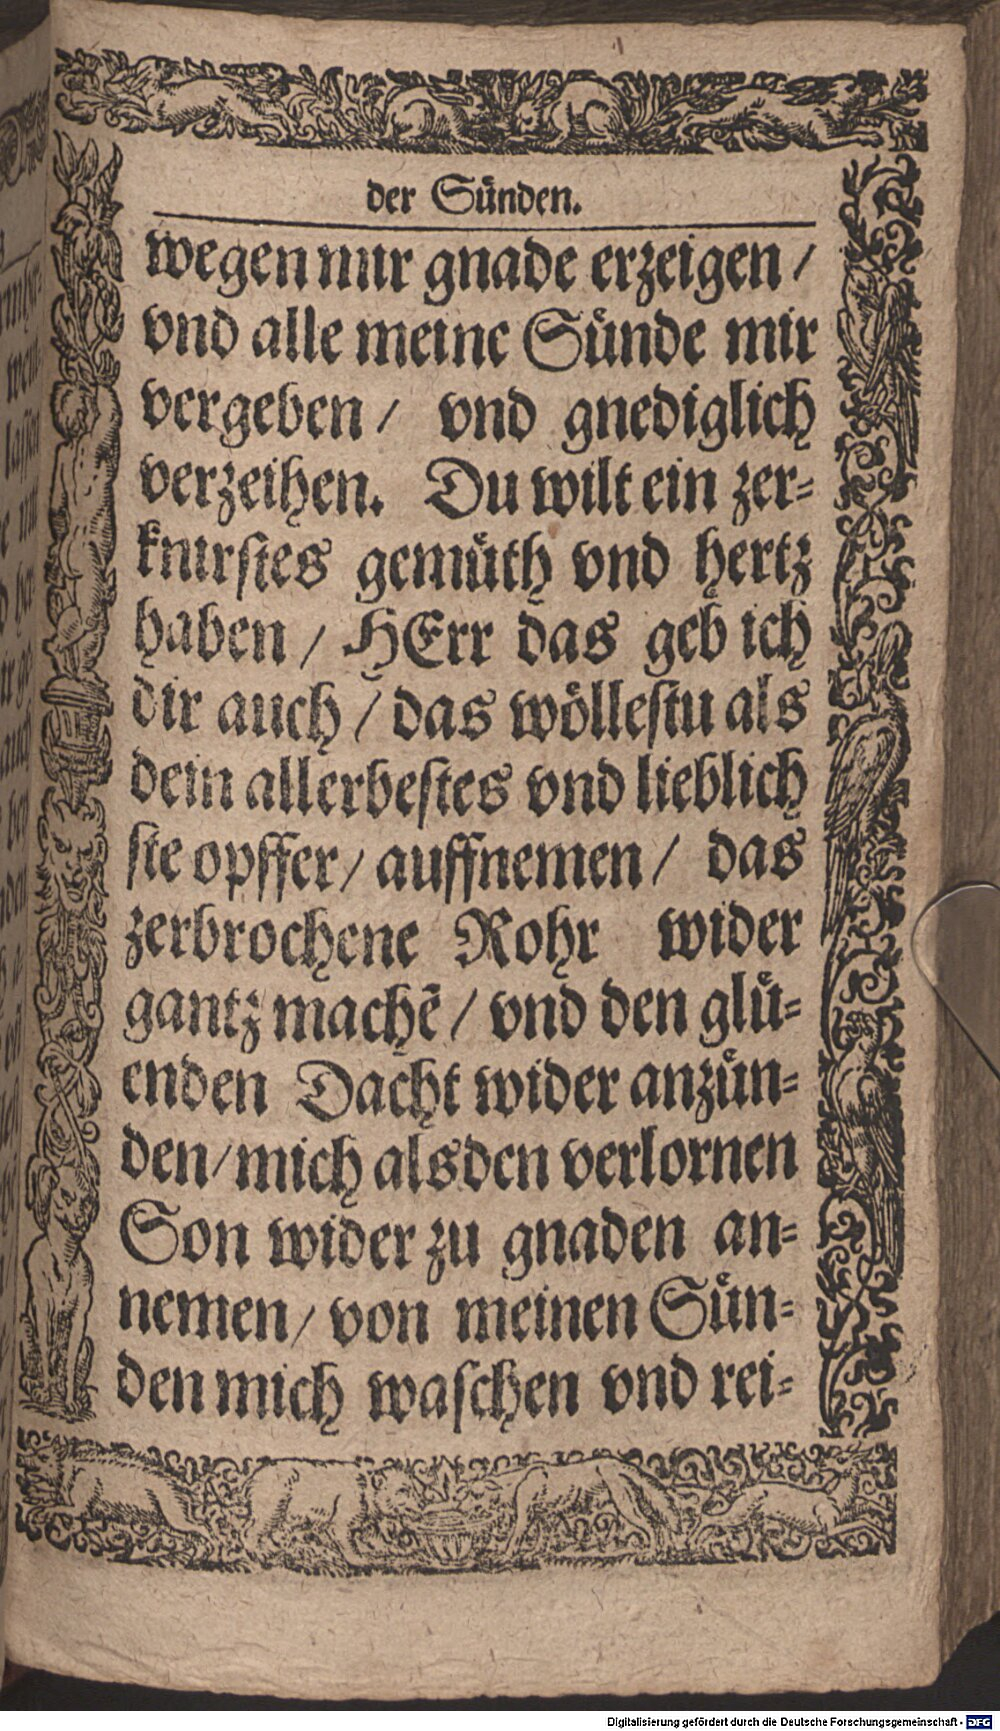 der Sünden.
wegen mir gnade erzeigen /
vnd alle meine Sünde mir
vergeben / vnd gnediglich
verzeihen. Du wilt ein zer-
knirstes gemüth vnd hertz
haben / HErr das geb ich
dir auch / das wöllestu als
dein allerbestes vnd lieblich
ste opffer / auffnemen / das
zerbrochene Rohr wider
gantz machē / vnd den glü-
enden Dacht wider anzün-
den / mich als den verlornen
Son wider zu gnaden an-
nemen / von meinen Sün-
den mich waschen vnd rei-
Digitalisierung gefördert durch die Deutsche Forschungsgemeinschaft - DFG